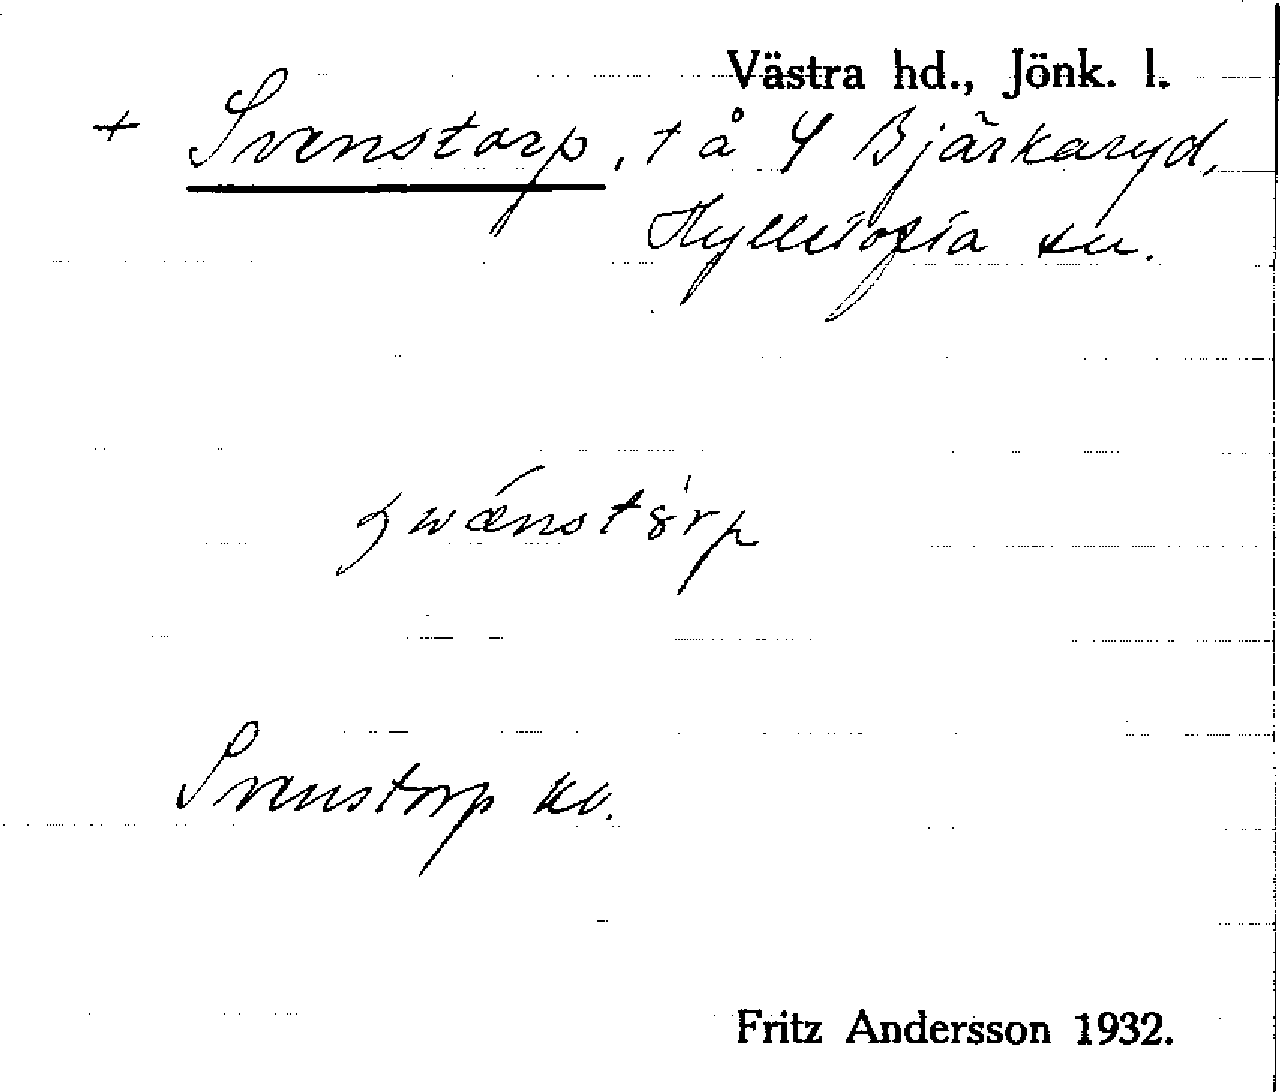 Västra hd., Jönk. l.
+ Svenstorp, t å Bjärkaryd,
Hylletofta sn.
Svenstorp kv.
Fritz Andersson 1932.